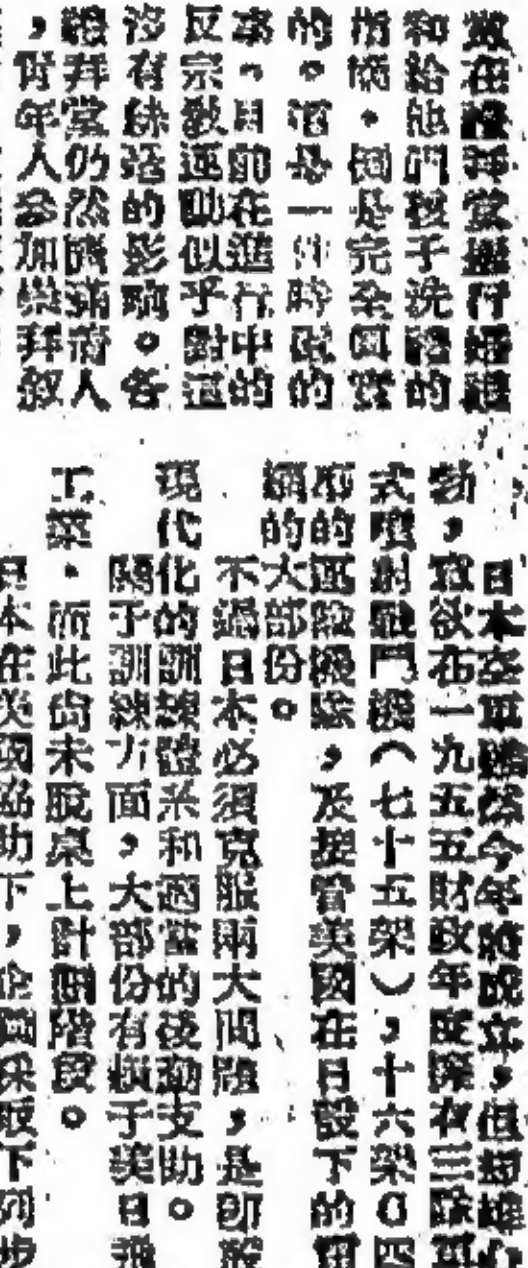 在禮拜堂舉行婚禮
和給他們孩子洗禮的
倒是完全真實
的。這是一件時髦的
事。目前在進行中的
反宗教運動似乎對這
沒有缺憾的影響。各
禮拜堂仍然擠滿着人
，青年人參加崇拜敘
日本空軍雖然今年始成立，但想雄心
勃，欲在一九五五財政年度深有三隊
式噴射戰鬥機（七十五架），十六架Ｃ四
的運險機隊，及接管美國在日設下的
網的大部份。
不過日本必須克服兩大問題，是即設
現代化的訓練體系和適當的後勤支助。
關于訓練方面，大部份有賴于美日飛
工業。而此尚未脫桌上計劃階段。
日本在美國協助下，企圖採取下列步